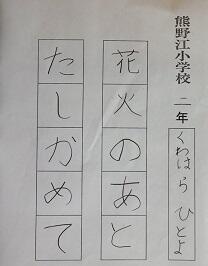 熊野江小学校 二年
くわはら ひとよ
花火のあと
たしかめて